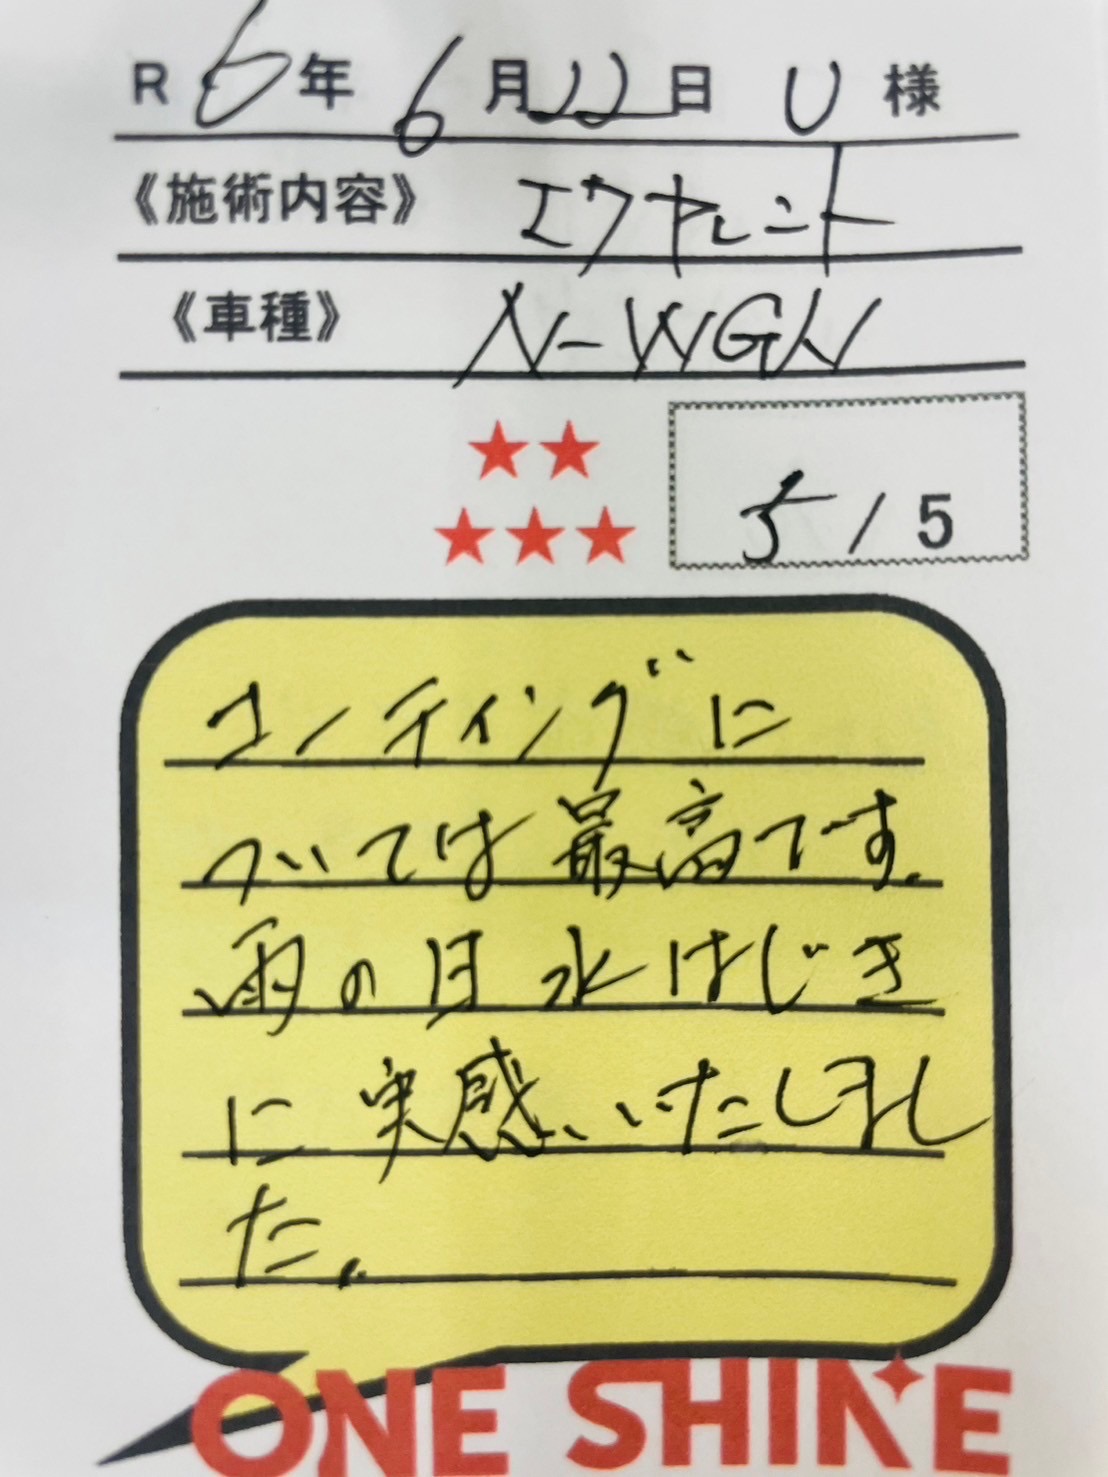 R 6年 6月22日 U 様
《施術内容》 エクセレント
《車種》 N-WGN
5/5
コーティングに
ついては最高です。
雨の日水はじき
に実感いたしまし
た。
ONE SHINE